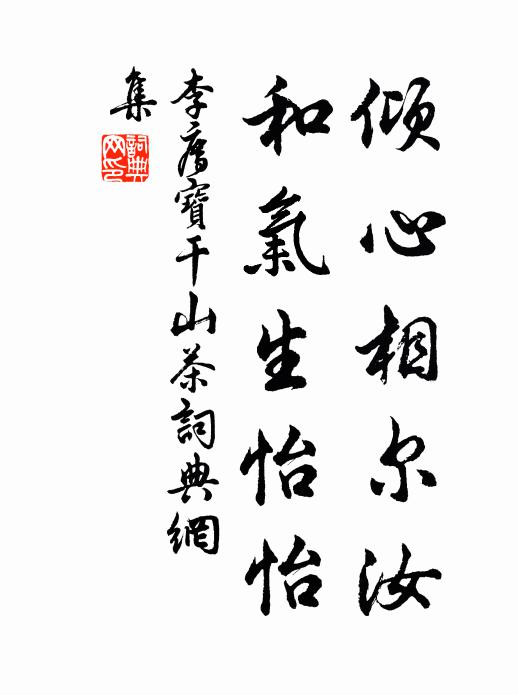 倾心相尔汝
和氣生怡怡
李廌寶干山茶詞典網
集
詞典网印